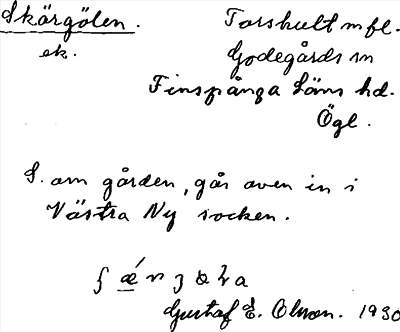 Skärgölen. Torshult m fl.
sk. Godegårds sn
Finspånga Läns hd.
Ögl.
S. om gården, går även in i
Västra Ny socken.
Gustaf E. Olsson. 1930